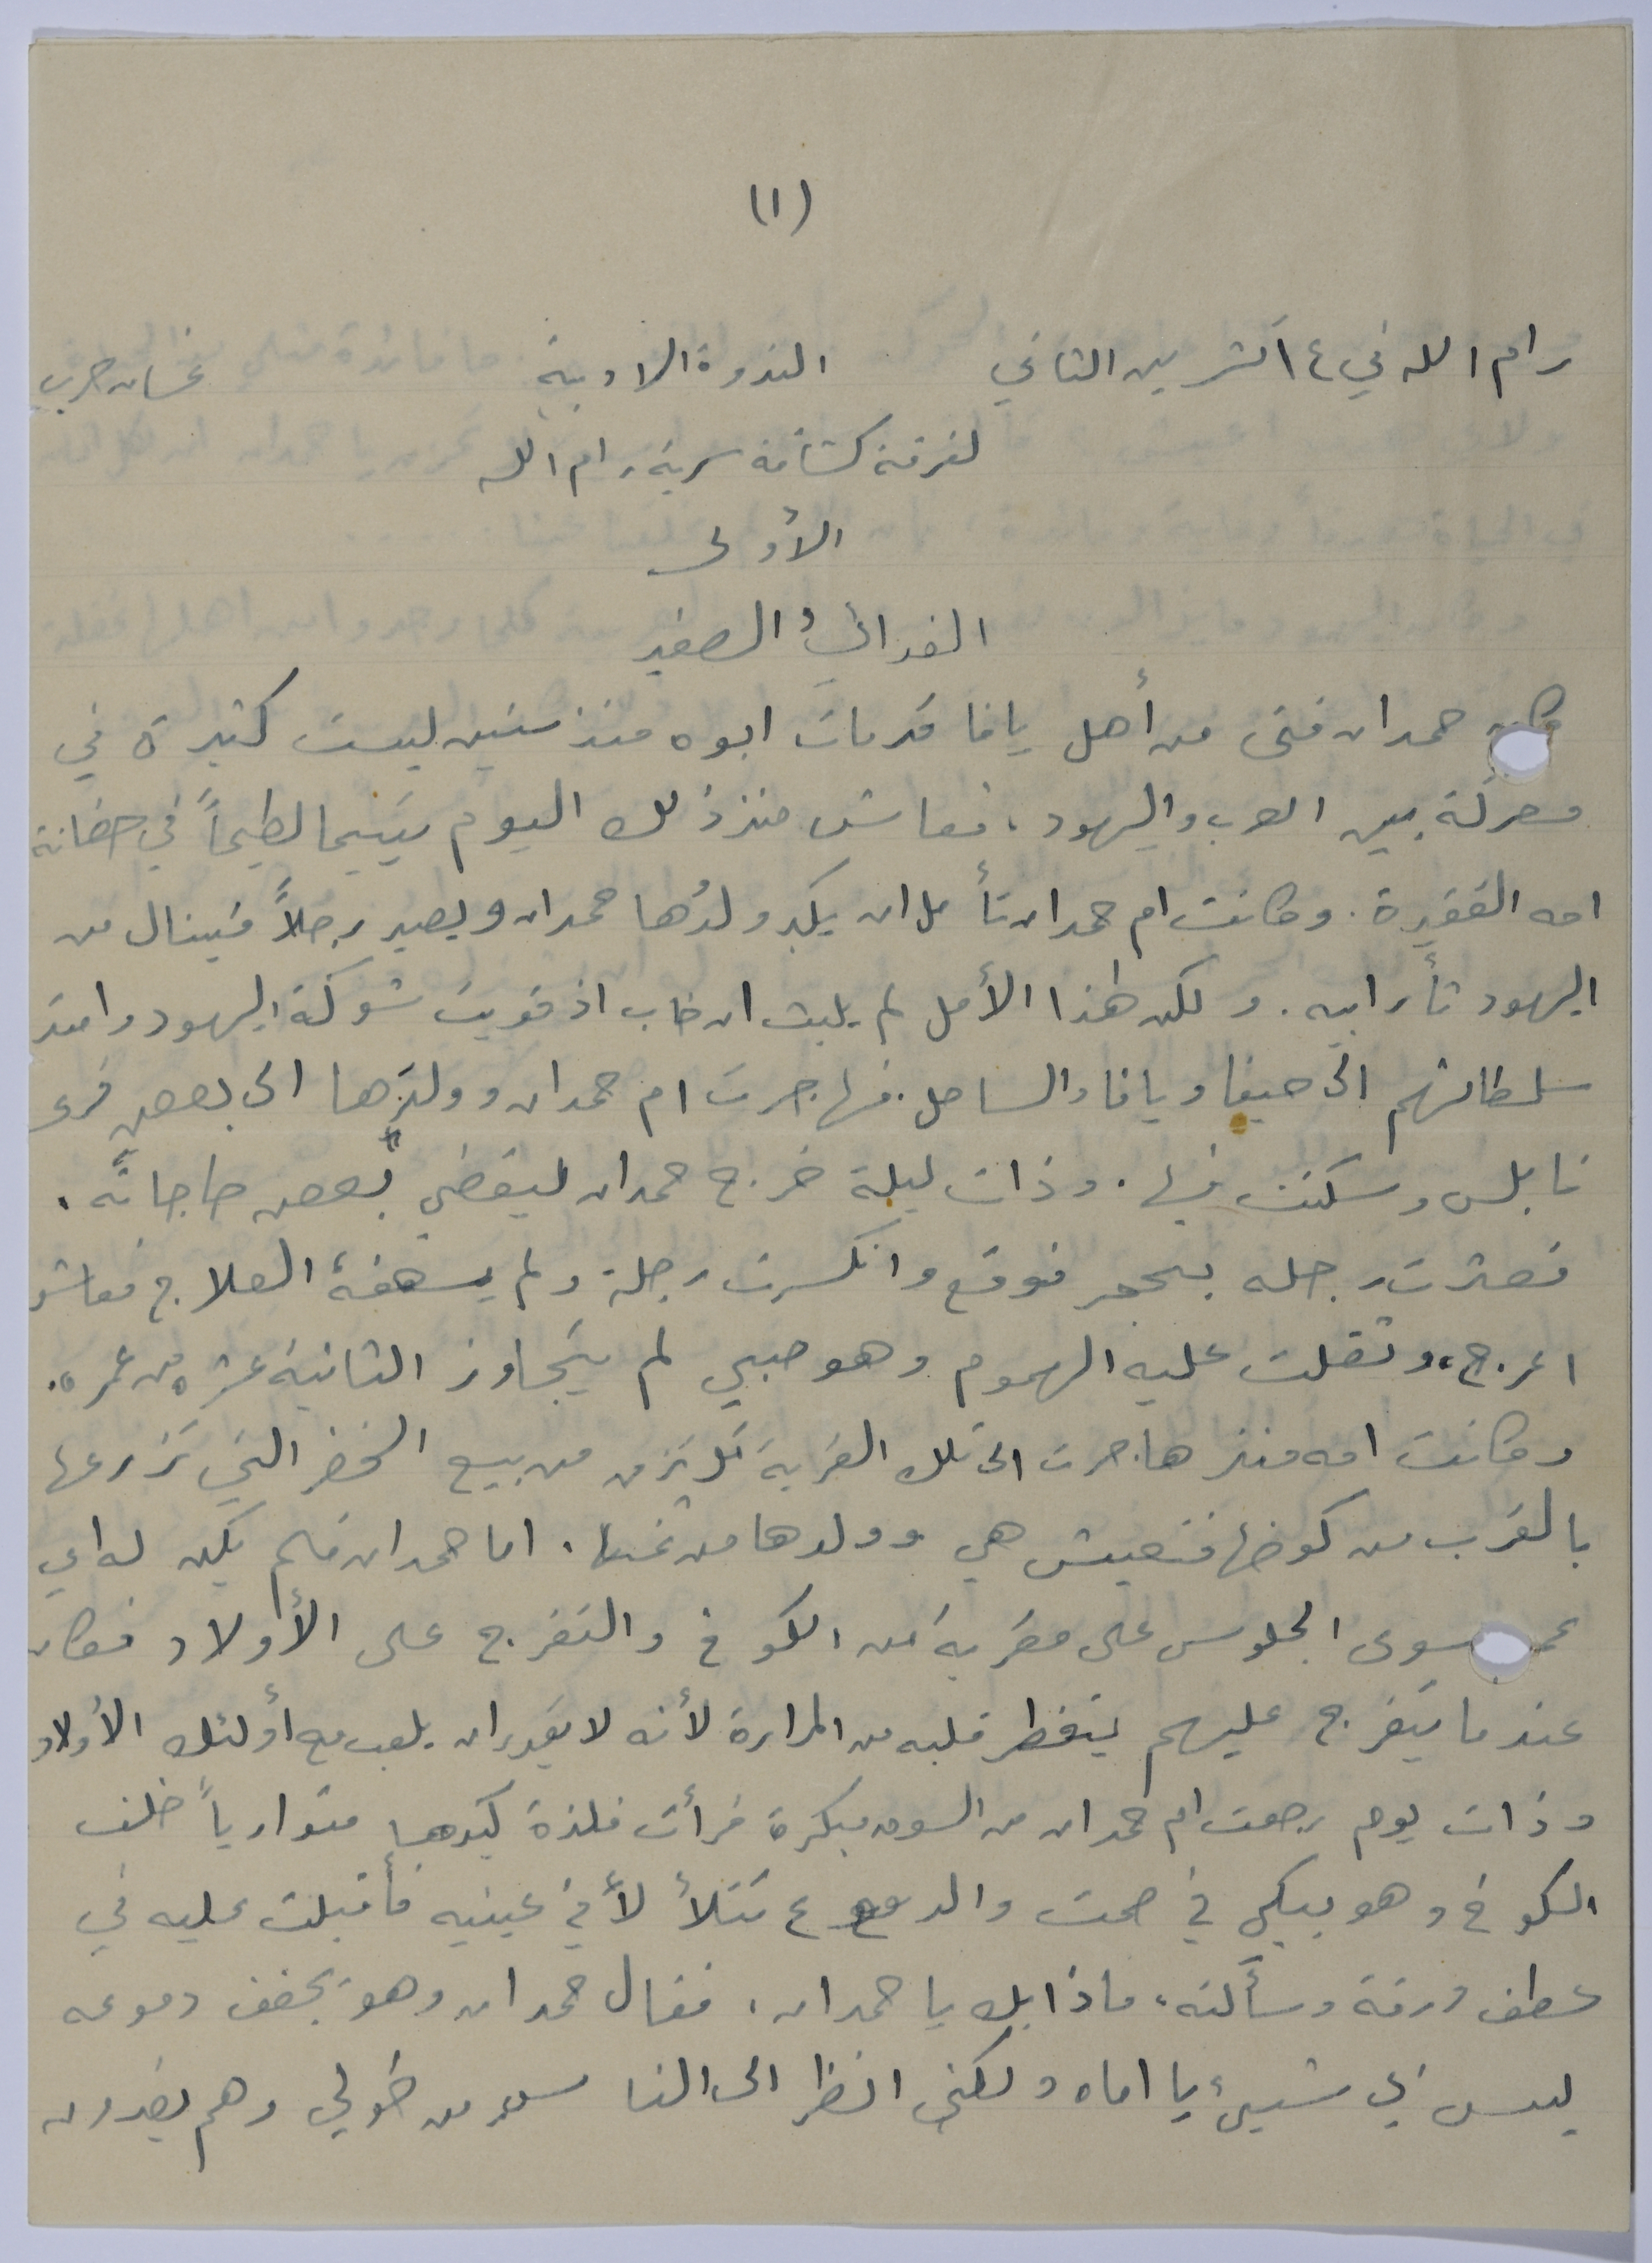 (١)
رام الله في ١٤ تشرين الثاني الندوة الادبية غسان حرب
لفرقة كشافة سرية رام الله
الأولى
الفدائيُ الصغير
كان حمدان فتى من أهل يافا قد مات ابوه منذ سنين ليست كثيرة في
معركة بين العرب واليهود، فعاش منذ ذلك اليوم يتيما لطيماً في حضانة
امه الفقيرة. وكانت ام حمدان تأمل ان يكبر ولدُها حمدان ويصير رجلاً فينال من
اليهود ثأر ابيه. ولكن هذا الأمل لم يلبث ان خاب اذ قويت شوكة اليهود وامتد
سلطانهم الى حيفا ويافا والساحل. فهاجرت ام حمدان وولدها الى بعض قرى
نابلس وسكنت فيها. وذات ليلة خرج حمدان ليقضي بعض حاجاته.
فعثرت رجله بحجر فوقع وانكسرت رجله ولم يسعفهُ العلاج فعاش
اعرج، وثقلت عليه الهموم وهو صبي لم يتجاوز الثانية عشره من عمره.
وكانت امه منذ هاجرت الى تلك القرية تكترزق من بيع الخضر التي تزرعها
بالقرب من كوخها فتعيش هي وولدها من ثمنها. اما حمدان فلم يكن له اي
عمل سوى الجلوس على مقربة من الكوخ والتفرج على الأولاد فكان
عندما يتفرج عليهم يتفطر قلبه من المرارة لأنه لا يقدر ان يلعب مع أولئك الأولاد
وذات يوم رجعت ام حمدان من السوق مبكرة فرأت فلذة كبدها متوارياً خلف
الكوخ وهو يبكي في صمت والدموع تتلألأ في عينيه فأقبلت عليه في
عطف ورقة وسألته، ماذا بك يا حمدان، فقال حمدان وهو يجفف دموعه
ليس بي شيئ يا اماه ولكني انظر الى الناس من حولي وهم يغدون